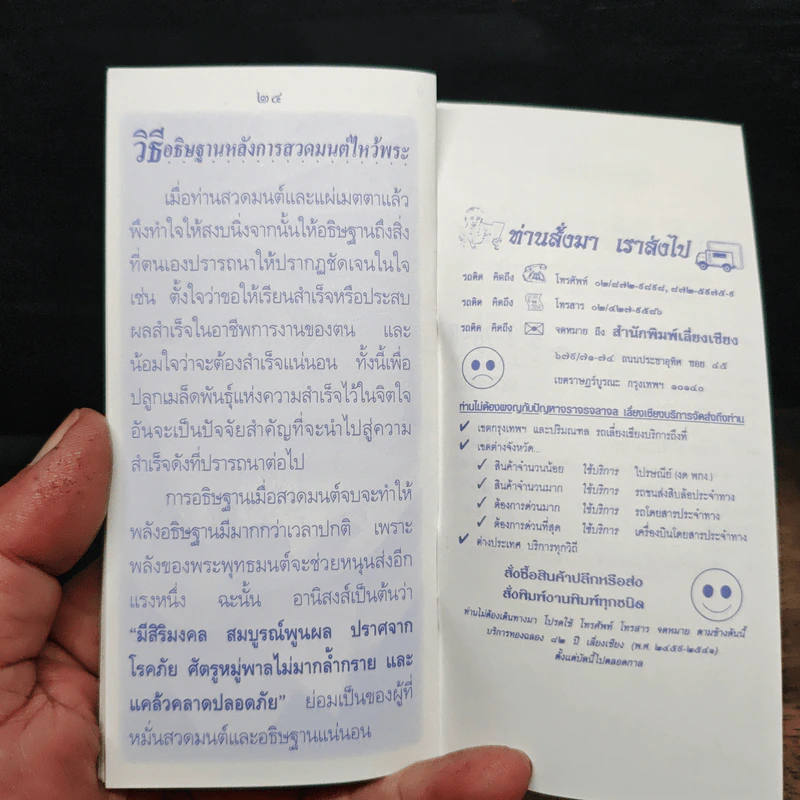 ๒๔
วิธีอธิษฐานหลังการสวดมนต์ไหว้พระ
เมื่อท่านสวดมนต์และแผ่เมตตาแล้ว
พึงทำใจให้สงบนิ่งจากนั้นให้อธิษฐานถึงสิ่ง
ที่ตนเองปรารถนาให้ปรากฏชัดเจนในใจ
เช่น ตั้งใจว่าขอให้เรียนสำเร็จหรือประสบ
ผลสำเร็จในอาชีพการงานของตน และ
น้อมใจว่าจะต้องสำเร็จแน่นอน ทั้งนี้เพื่อ
ปลูกเมล็ดพันธุ์แห่งความสำเร็จไว้ในจิตใจ
อันจะเป็นปัจจัยสำคัญที่จะนำไปสู่ความ
สำเร็จดังที่ปรารถนาต่อไป
การอธิษฐานเมื่อสวดมนต์จบจะทำให้
พลังอธิษฐานมีมากกว่าเวลาปกติ เพราะ
พลังของพระพุทธมนต์จะช่วยหนุนส่งอีก
แรงหนึ่ง ฉะนั้น อานิสงส์เป็นต้นว่า
“มีสิริมงคล สมบูรณ์พูนผล ปราศจาก
โรคภัย ศัตรูหมู่พาลไม่มากล้ำกราย และ
แคล้วคลาดปลอดภัย” ย่อมเป็นของผู้ที่
หมั่นสวดมนต์และอธิษฐานแน่นอน
ท่านสั่งมา เราส่งไป
รถติด คิดถึง โทรศัพท์ ๐๒/๘๗๒-๙๘๙๘, ๘๗๒-๕๙๗๕-๙
รถติด คิดถึง โทรสาร ๐๒/๔๒๗-๙๕๘๖
รถติด คิดถึง จดหมาย ถึง สำนักพิมพ์เลี่ยงเชียง
๖๗๙/๗๑-๗๔ ถนนประชาอุทิศ ซอย ๔๕
เขตราษฎร์บูรณะ กรุงเทพฯ ๑๐๑๔๐
ท่านไม่ต้องผจญกับปัญหาจราจรจลาจล เลี่ยงเชียงบริการจัดส่งถึงท่าน
✓ เขตกรุงเทพฯ และปริมณฑล รถเลี่ยงเชียงบริการถึงที่
✓ เขตต่างจังหวัด...
✓ สินค้าจำนวนน้อย ใช้บริการ ไปรษณีย์ (งด พกง.)
✓ สินค้าจำนวนมาก ใช้บริการ รถขนส่งสิบล้อประจำทาง
✓ ต้องการด่วนมาก ใช้บริการ รถโดยสารประจำทาง
✓ ต้องการด่วนที่สุด ใช้บริการ เครื่องบินโดยสารประจำทาง
✓ ต่างประเทศ บริการทุกวิถี
สั่งซื้อสินค้าปลีกหรือส่ง
สั่งพิมพ์งานพิมพ์ทุกชนิด
ท่านไม่ต้องเดินทางมา โปรดใช้ โทรศัพท์ โทรสาร จดหมาย ตามข้างต้นนี้
บริการทองฉลอง ๘๒ ปี เลี่ยงเชียง (พ.ศ. ๒๔๕๙-๒๕๔๑)
ตั้งแต่บัดนี้ไปตลอดกาล